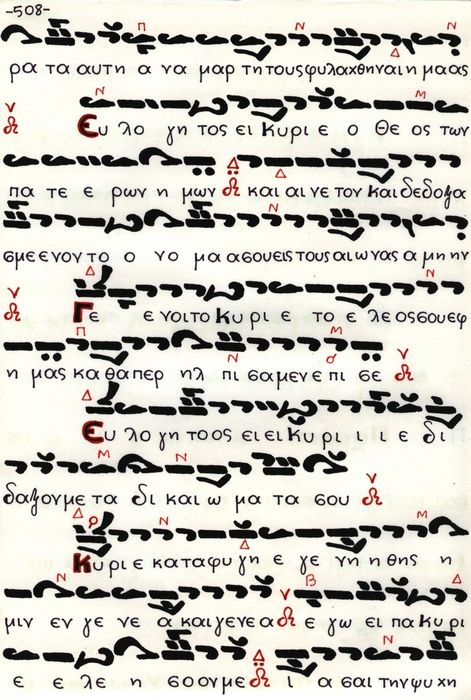 -508-
ρα τα αυτη α να μαρ τητουςφυλαχθηναιημαας
Ευ λο γητος ει Κυριε ο Θε ος των
πα τε ε ρων η μων και αι νε τον και δεδοξα
σμεενοντο ο νο μα ασουεις τους αι ωνας α μη ην
Γε ε νοιτο Κυ ρι ε το ε λε οςσουεφ
η μας κα θαπερ ηλ πι σαμενε πι σε
Ευ λο γη τοος ειειΚυ ρι ι ι ε δι
δαξονμε τα δι και ω μα τα σου
Κυριε καταφυ γη ε γε νη ηθης η
μιν εν γε νε α και γενεα ε γω ει πα Κυρι
ε ε λε η σοονμε ι α σαι την ψυ χη